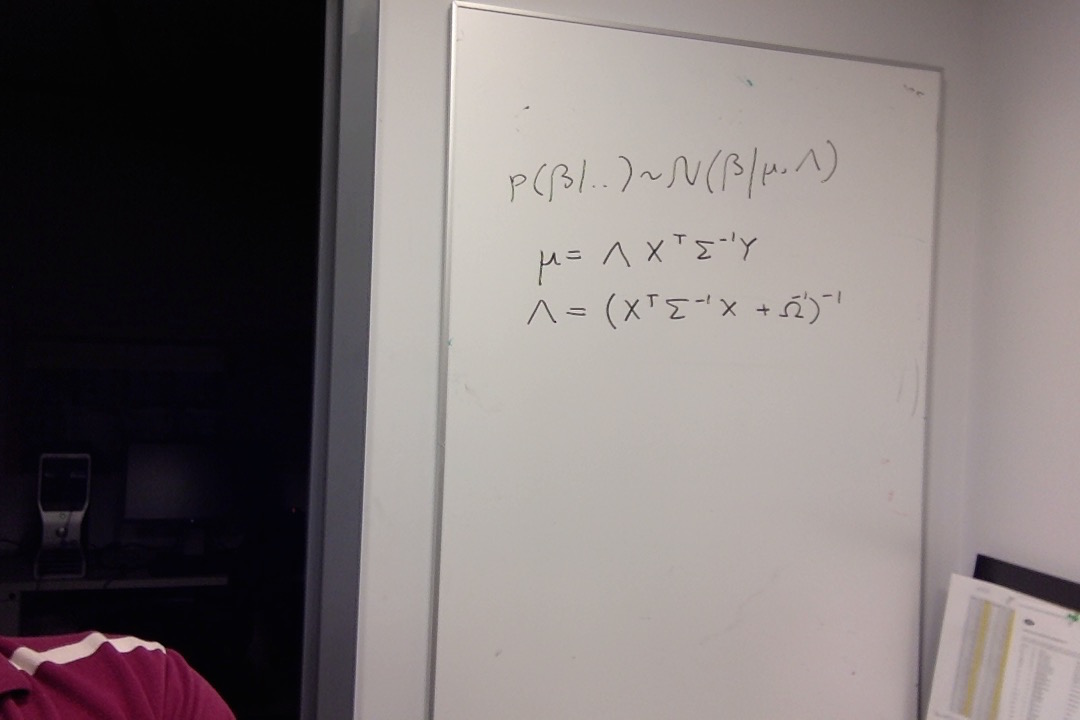 p(β|..) ~ N(β|μ, Λ)
μ = Λ X^T Σ^-1 Y
Λ = (X^T Σ^-1 X + Ω^-1)^-1